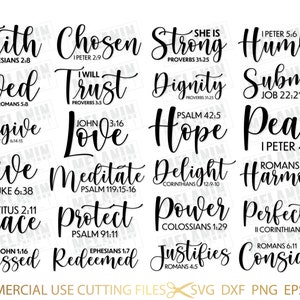 ith
EPHESIANS 2:8
Chosen
I PETER 2:9
SHE IS
Strong
PROVERBS 31:25
I PETER 5:6
Hum
ed
ROMANS 5:8
I WILL
Trust
PROVERBS 3:5
Dignity
PROVERBS 31:25
Subm
JOB 22:21
give
6:14-15
JOHN 3:16
Love
PSALM 42:5
Hope
Pea
I PETER
ve
UKE 6:38
Meditate
PSALM 119:15-16
Delight
II CORINTHIANS 12:9-10
ROMANS
Harmo
TITUS 2:11
ace
Protect
PSALM 91:11
Power
COLOSSIANS 1:29
Perfect
II CORINTHIANS
JOHN 1:16
essed
EPHESIANS 1:7
Redeemed
Justifies
ROMANS 4:5
ROMANS 6:11
Consid
MERCIAL USE CUTTING FILES SVG DXF PNG EP